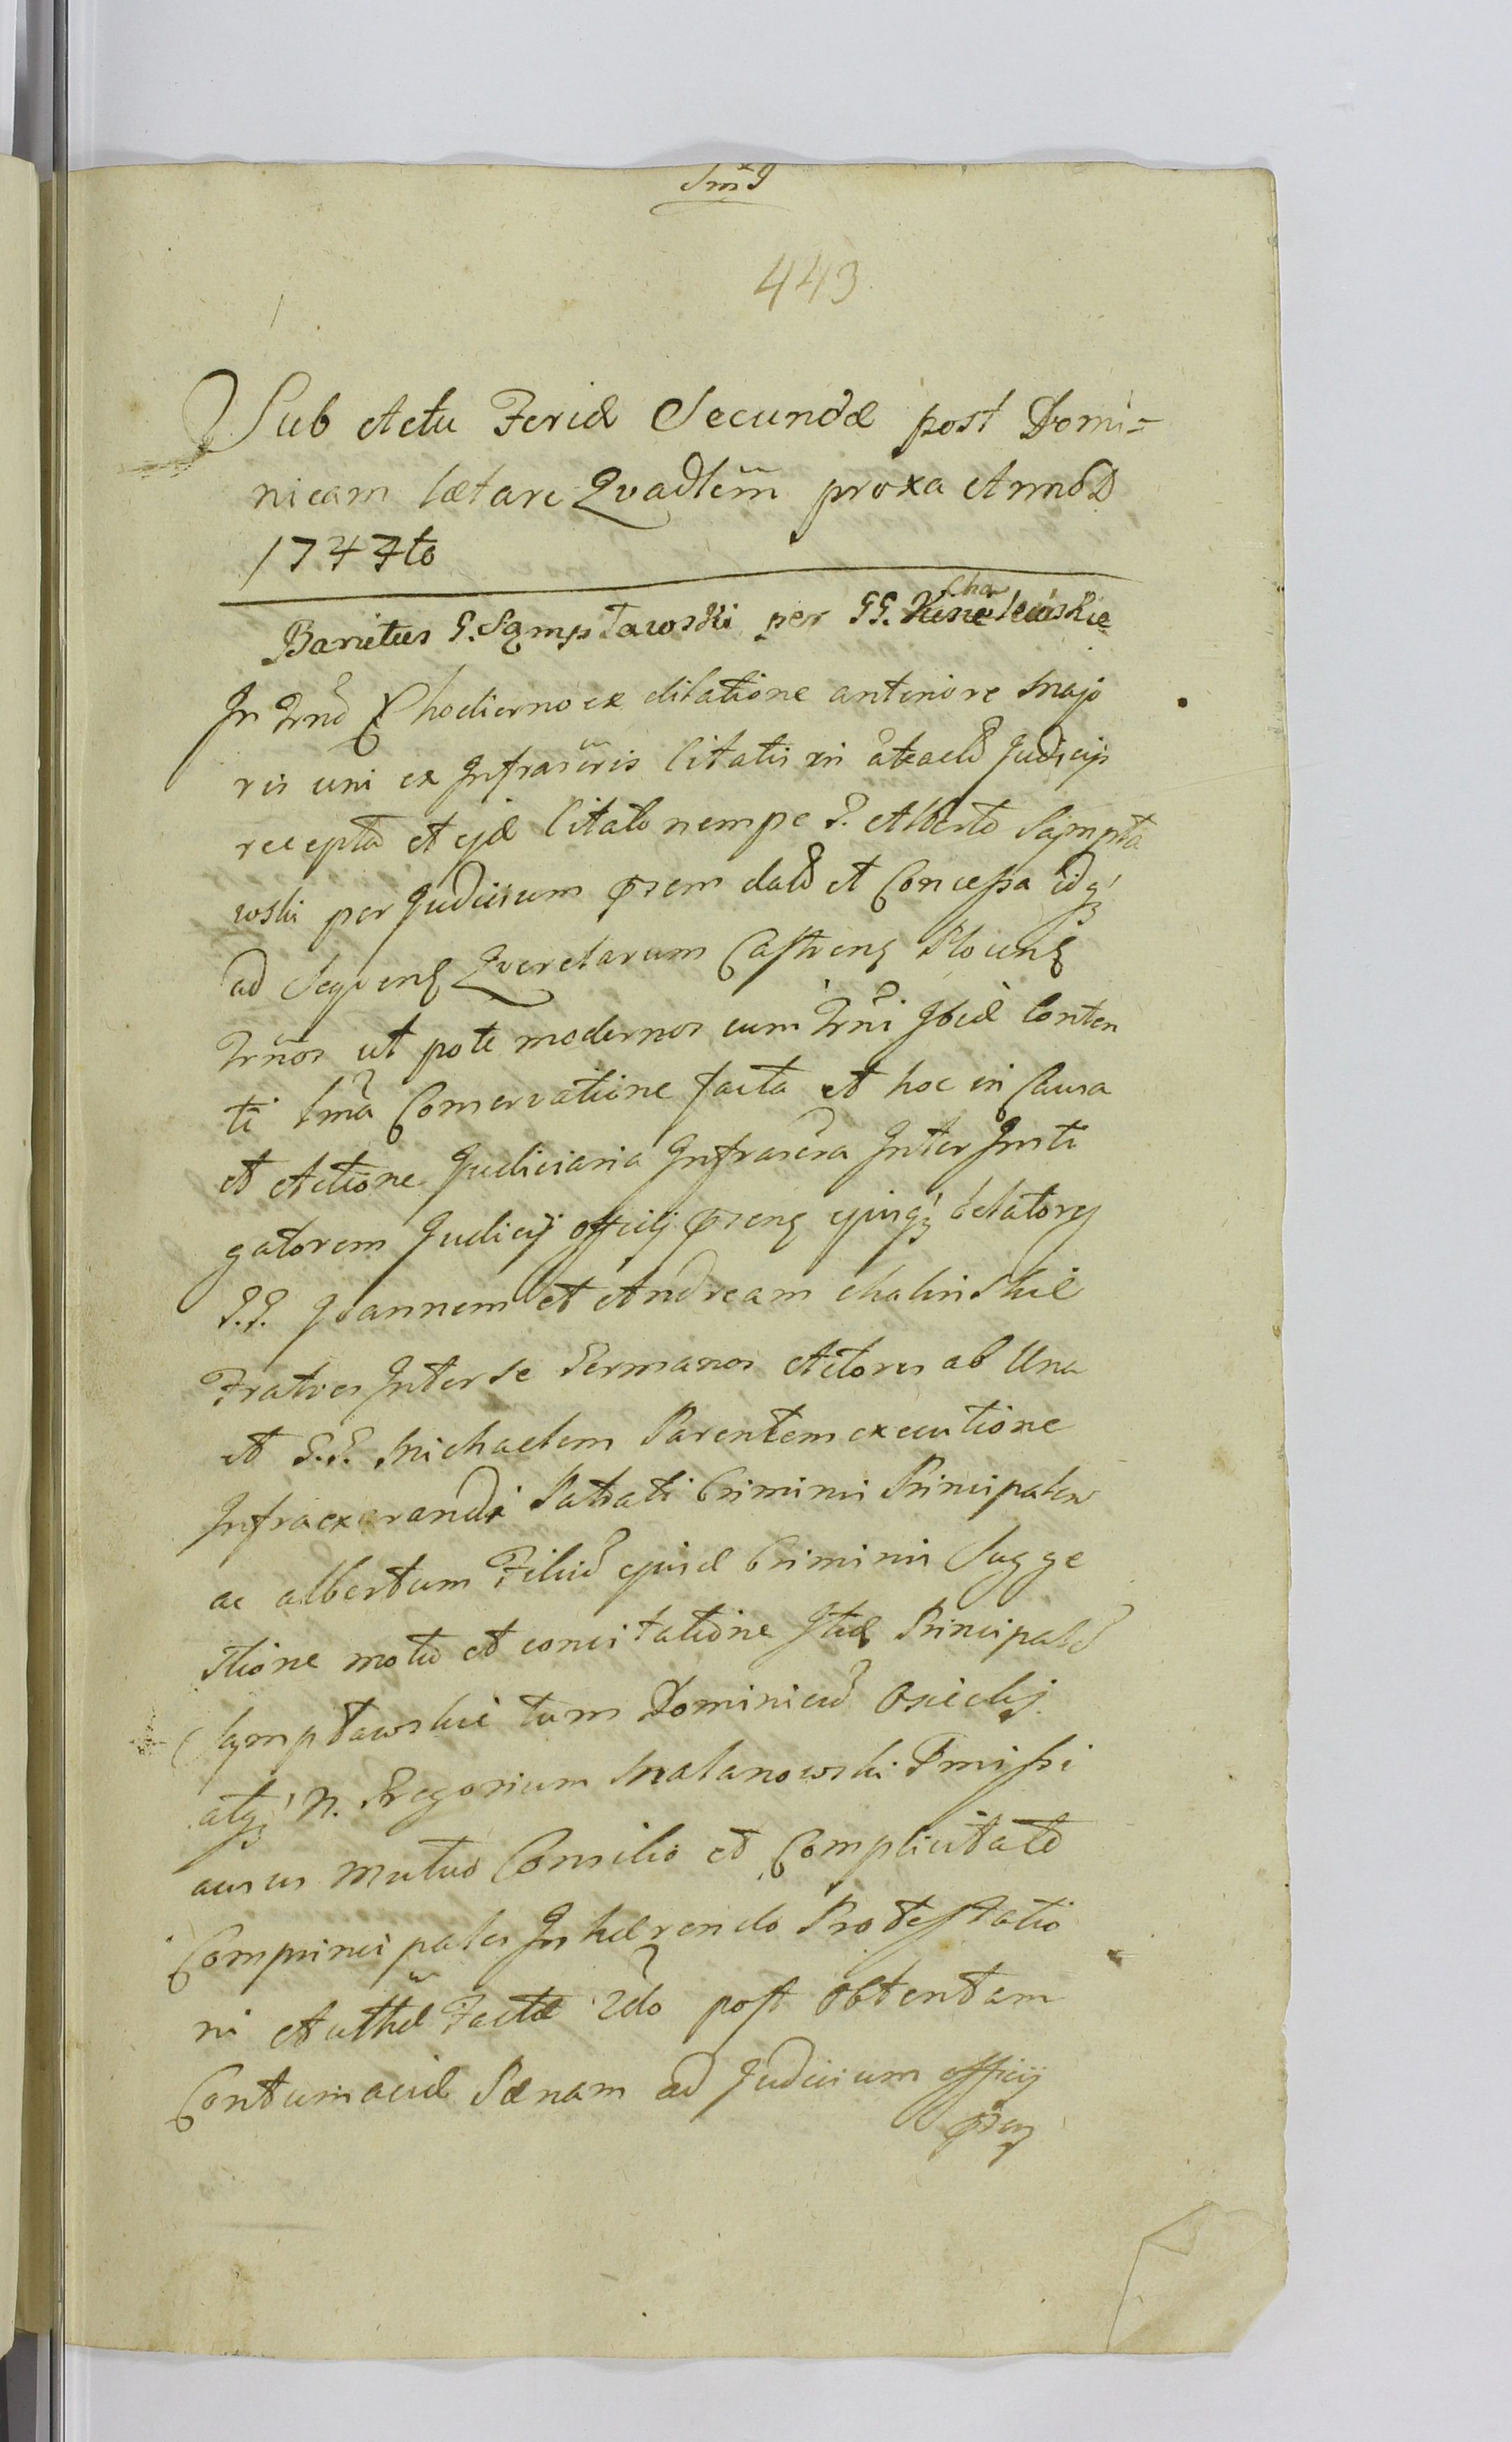 443
Sub Actu Feriæ Secundæ post Domi=
nicam lætare Qvadlem̃ proxa Anno D
1747to
Banitus G. Sampławski per GG. Cha leuskie
In Trno hodierno ex dilatione anteriore Majo
ris uni ex Infrascris Citatis in Judicijs
recepta et ejd Citato nempe G. Alberto Sąmpła
wski per Judicium prsem dato et Concessa idq
ad Seqven Qverelarum Castren Plocen
Trños ut pote modernos cum Trñi Ibid Conten
ti Conservatione facta et hoc in Causa
et Actione Judiciaria Infrascra Inter Insti
gatorem Judicij officij prsen ejusq delatores
G.G. Joannem et Andream
Fratres Inter se Germanos Actores ab Una
et G.G. Michaelem Parentem executione
Infraexarandi Patrati Criminis Principalem
ac albertum Filium ejusd Criminis Sugge
stione motu et concitatione Principalem
Sąmpławskie tum Dominicum
atq N. Gregorium Malanowski Pmissi
ausus mutuo Consilio et Complicitate
Comprincipales Inhærendo Protestatio
ni Authæ Factæ post obtentam
Contumaciæ Pænam ad Judicium officij
prsen